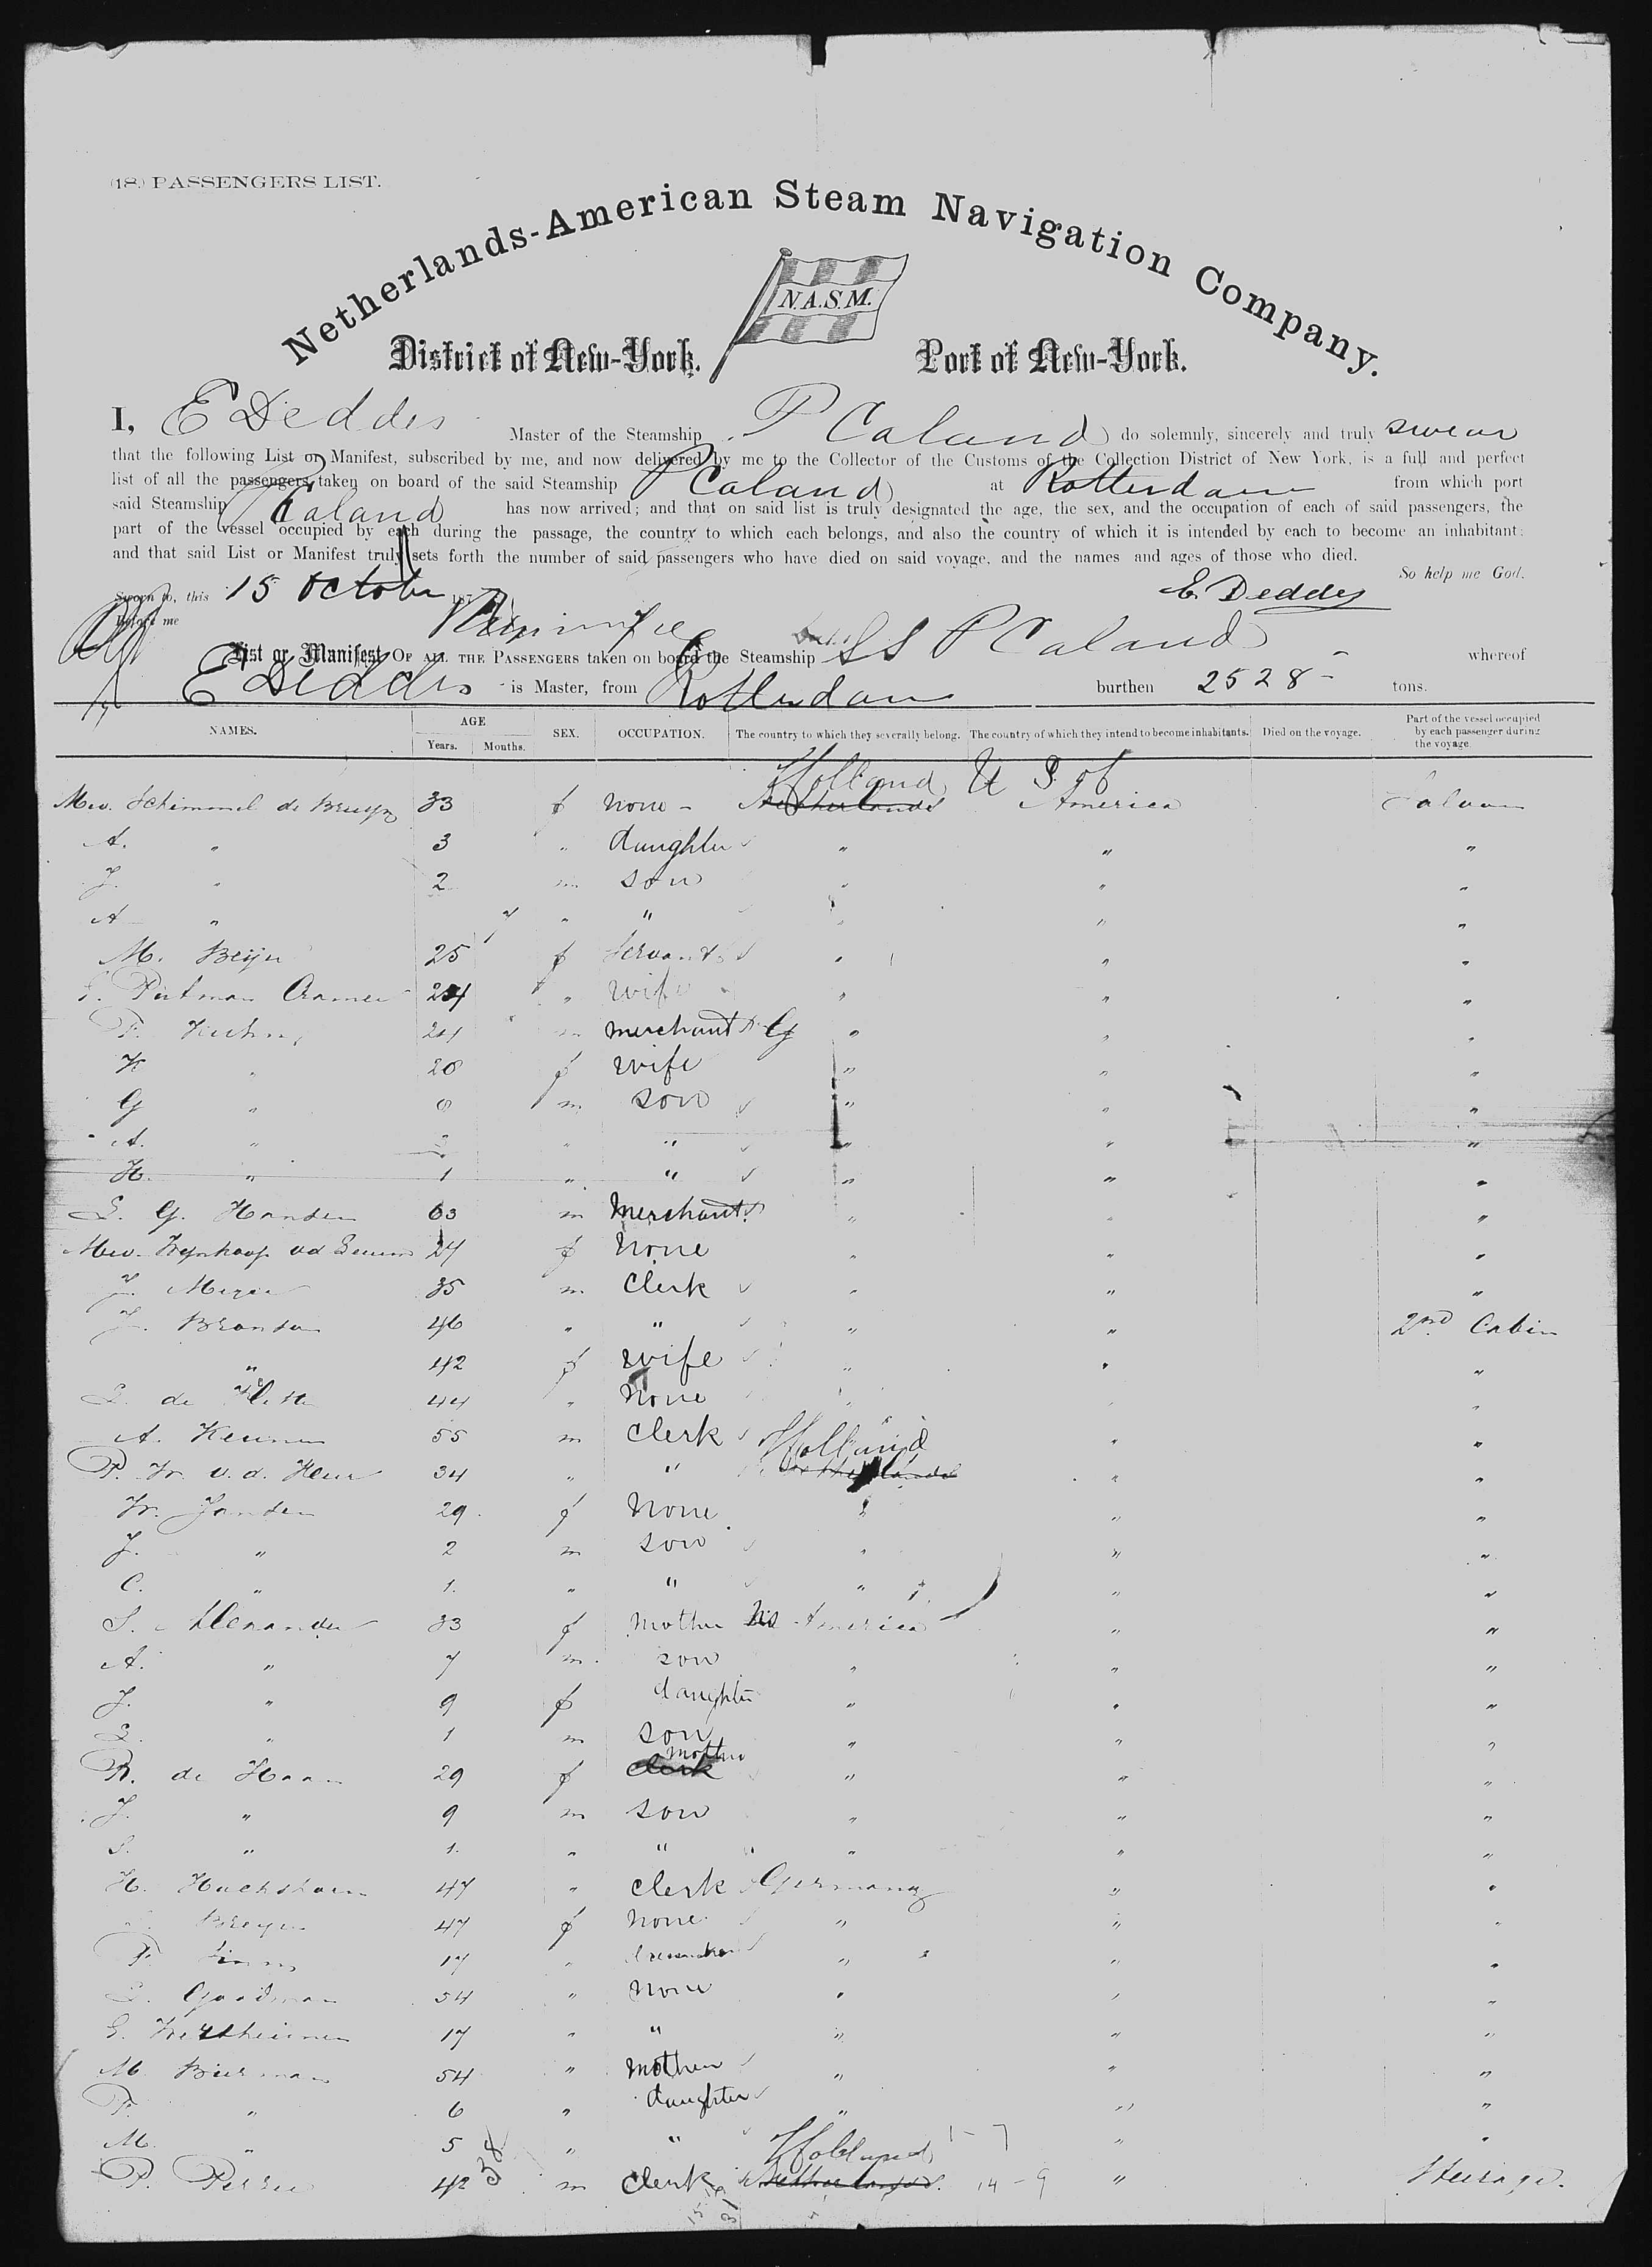 (18.) PASSENGERS LIST.
Netherlands-American Steam Navigation Company.
N.A.S.M.
District of New-York. Port of New-York.
I, E Deddes Master of the Steamship P Caland do solemnly, sincerely and truly swear
that the following List or Manifest, subscribed by me, and now delivered by me to the Collector of the Customs of the Collection District of New York, is a full and perfect
list of all the passengers taken on board of the said Steamship P Caland at Rotterdam from which port
said Steamship P Caland has now arrived; and that on said list is truly designated the age, the sex, and the occupation of each of said passengers, the
part of the vessel occupied by each during the passage, the country to which each belongs, and also the country of which it is intended by each to become an inhabitant;
and that said List or Manifest truly sets forth the number of said passengers who have died on said voyage, and the names and ages of those who died.
So help me God.
Sworn to, this 15 October 187 E. Deddes
Before me
List or Manifest OF ALL THE PASSENGERS taken on board the Steamship SS P Caland whereof
E Deddes is Master, from Rotterdam burthen 2528 - tons.
NAMES. AGE Years. Months. SEX. OCCUPATION. The country to which they severally belong. The country of which they intend to become inhabitants. Died on the voyage. Part of the vessel occupied by each passenger during the voyage
Holland U S of
Mev. Schimmel de Bruyn 33 f none - Netherlands America Saloon
A. " 3 " daughter " " "
J. " 2 m son " " "
A " 7 " " " " "
M. Beijer 25 f servant " " "
Putman Cramer 24 " wife " " "
F. Kuhn 24 m merchant G " " "
K " 20 f wife " " "
G " m son " " "
A. " " " " " "
H. " 1 " " " " "
G. Hansen 63 m merchant " " "
Mev. 24 f none " " "
J. Meyer 35 m clerk " " "
J. Bronson 46 " " " " 2nd Cabin
" 42 f wife " " "
de 44 " none " " "
A. Keunen 55 m clerk Holland " "
P. W. v.d. Heur 34 " " Netherlands " "
W. Jansen 29 f none " " "
J. " 2 m son " " "
C. " 1. " " " " "
S. Alexander 33 f mother America " "
A. " 7 m son " " "
J. " 9 f daughter " " "
S. " 1 m son " " "
mother
R. de Haan 29 f clerk " " "
J. " 9 m son " " "
S. " 1. " " " " "
H. 47 " clerk Germany " "
Breyer 47 f none " " "
F. 17 " " " "
S. Goodman 54 " none " " "
17 " " " " "
M. Bierman 54 " mother " " "
F. " 6 " daughter " " "
M. " 5 " " Holland 1 - 7 " "
P. Perree 42 m clerk Netherlands. 14 - 9 " Steerage.
38